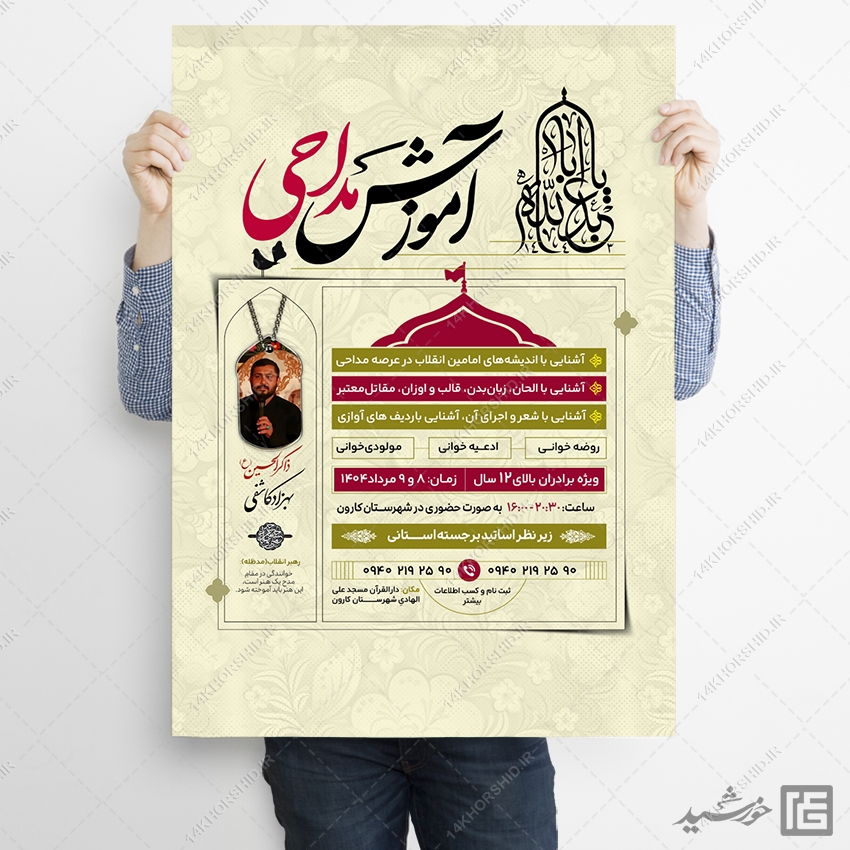 یا اباعبدالله
۱۴۴۲
آموزش مداحی
آشنایی با اندیشه‌های امامین انقلاب در عرصه مداحی
آشنایی با الحان، زبان‌بدن، قالب و اوزان، مقاتل‌معتبر
آشنایی با شعر و اجرای آن، آشنایی باردیف های آوازی
روضه خوانی
ادعیه خوانی
مولودی‌خوانی
ویژه برادران بالای ۱۲ سال
زمان: ۸ و ۹ مرداد ۱۴۰۴
ساعت: ۲۰:۳۰-۱۶:۰۰ به صورت حضوری در شهرستان کارون
زیر نظر اساتید برجسته استانی
۰۹۴۰ ۲۱۹ ۲۵ ۹۰
۰۹۴۰ ۲۱۹ ۲۵ ۹۰
ثبت نام و کسب اطلاعات
بیشتر
مکان: دارالقرآن مسجد علی
الهادی شهرستان کارون
ذاکرالحسین(ع)
بهزاد کاشفی
رهبر انقلاب(مدظله):
خوانندگی در مقام
مدح یک هنر است،
این هنر باید آموخته شود.
خورشید
14KHORSHID.IR